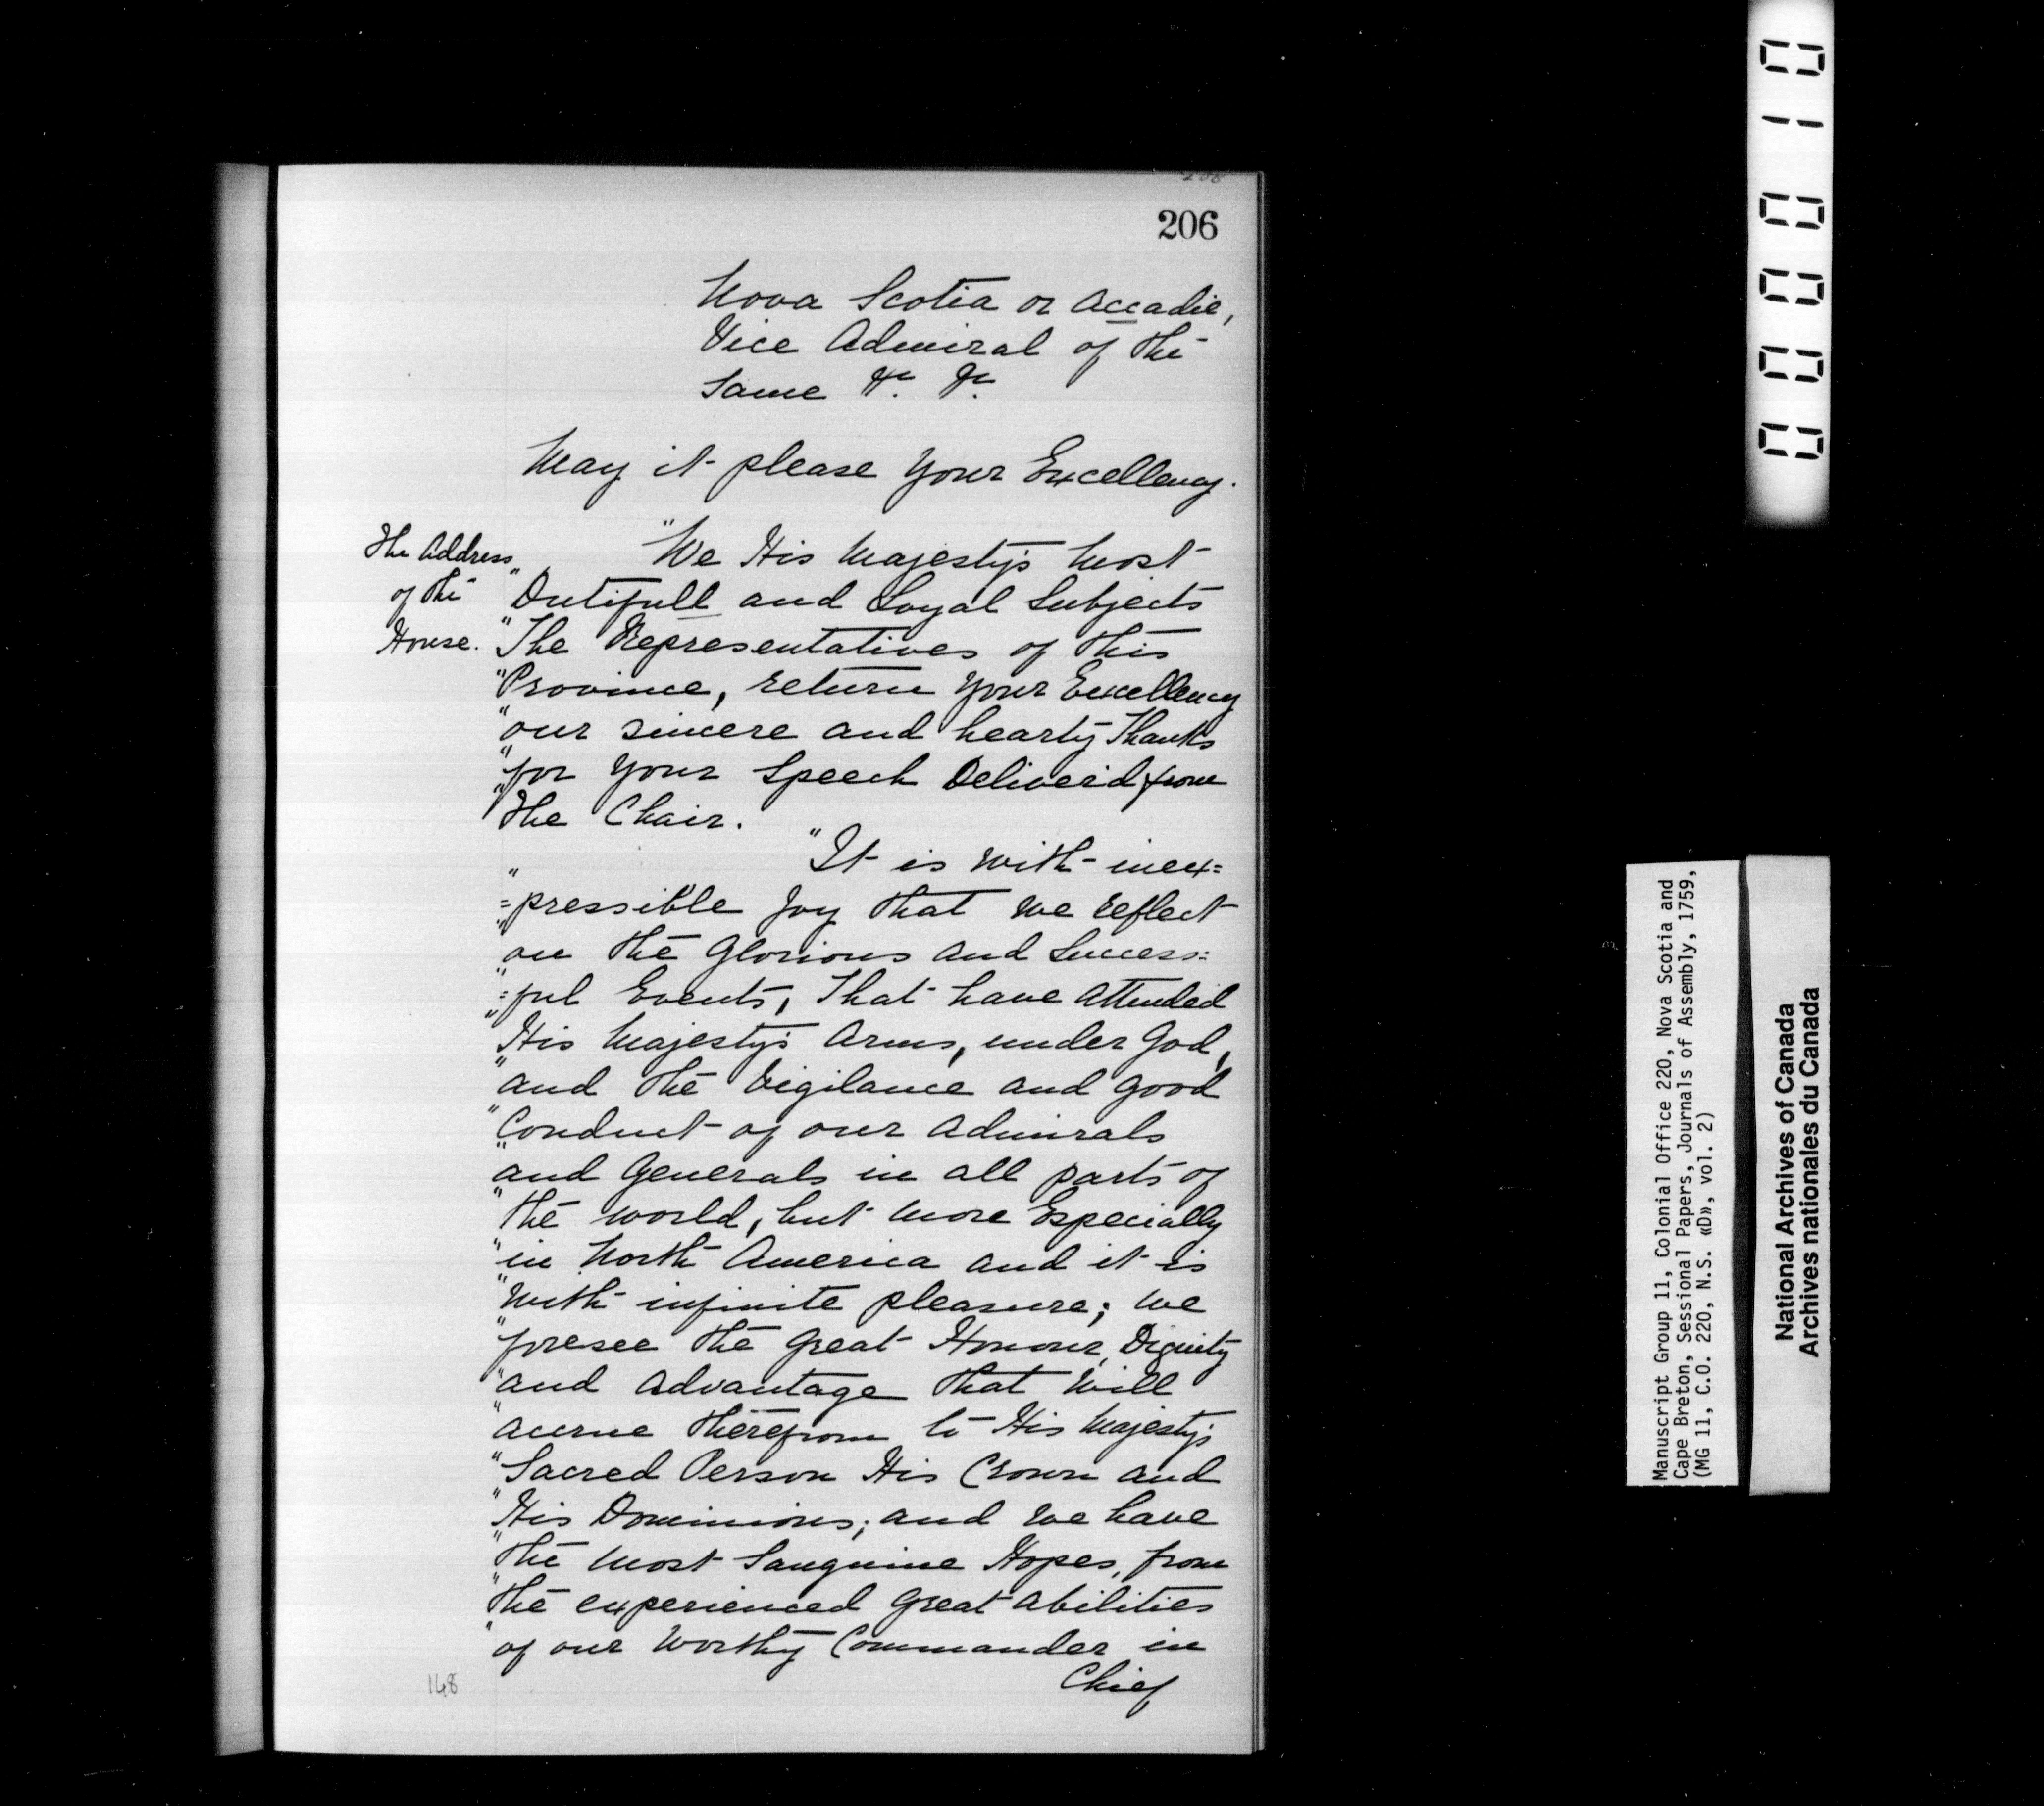 206
Nova Scotia or Accadie,
Vice Admiral of the
Same &c. &c.
May it please Your Excellency.
The Address
of the
House.
"We His Majesty's Most
"Dutifull and Loyal Subjects
"The Representatives of this
"Province, return Your Excellency
"our sincere and hearty Thanks
"for Your Speech Deliver'd from
"the Chair.
"It is with inex=
"=pressible Joy that we reflect
"on the Glorious and Success=
"=ful Events, That have attended
"His Majesty's Arms, under God,
"and the Vigilance and good
"Conduct of our Admirals
"and Generals in all parts of
"the world, but more Especially
"in North America and it is
"with infinite pleasure; we
"foresee the great Honour, Dignity
"and advantage that will
"accrue therefrom to His Majesty's
"Sacred Person His Crown and
"His Dominions; and we have
"the most Sanguine Hopes, from
"the experienced great abilities
"of our Worthy Commander in
Chief
148
000010
Manuscript Group 11, Colonial Office 220, Nova Scotia and
Cape Breton, Sessional Papers, Journals of Assembly, 1759,
(MG 11, C.O. 220, N.S. «D», vol. 2)
National Archives of Canada
Archives nationales du Canada